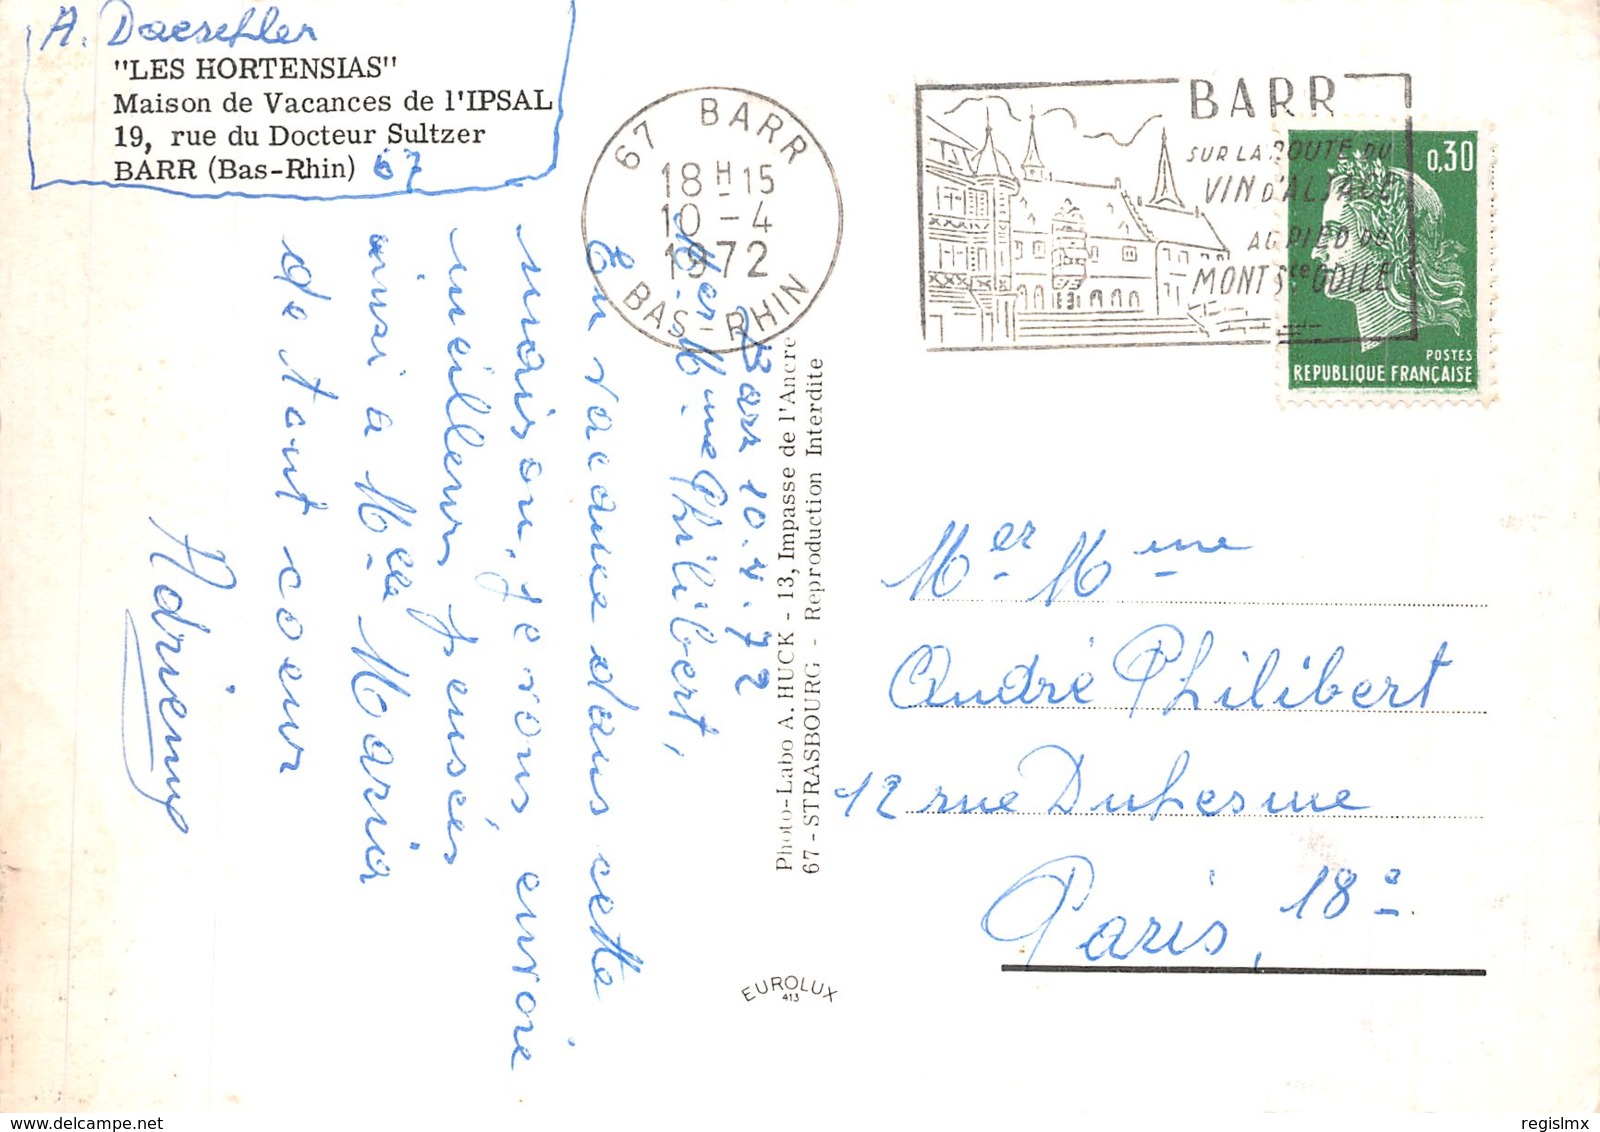 A. Daeschler
"LES HORTENSIAS"
Maison de Vacances de l'IPSAL
19, rue du Docteur Sultzer
BARR (Bas-Rhin) 67
67 BARR
18H15
10-4
1972
BAS-RHIN
BARR
SUR LA ROUTE DU
VIN D'ALSACE
AU PIED DU
MONT STE ODILE
0,30
POSTES
REPUBLIQUE FRANÇAISE
Barr 10.4.72
Mer Mme Philibert,
En vacance dans cette
maison, je vous envoie
meilleurs pensées
ainsi à Melle Maria
de tout coeur
Adrienne
Photo-Labo A. HUCK - 13, Impasse de l'Ancre
67 - STRASBOURG - Reproduction Interdite
EUROLUX
413
Mer Mme
André Philibert
12 rue Duhesme
Paris, 18e
delcampe.net
regislmx